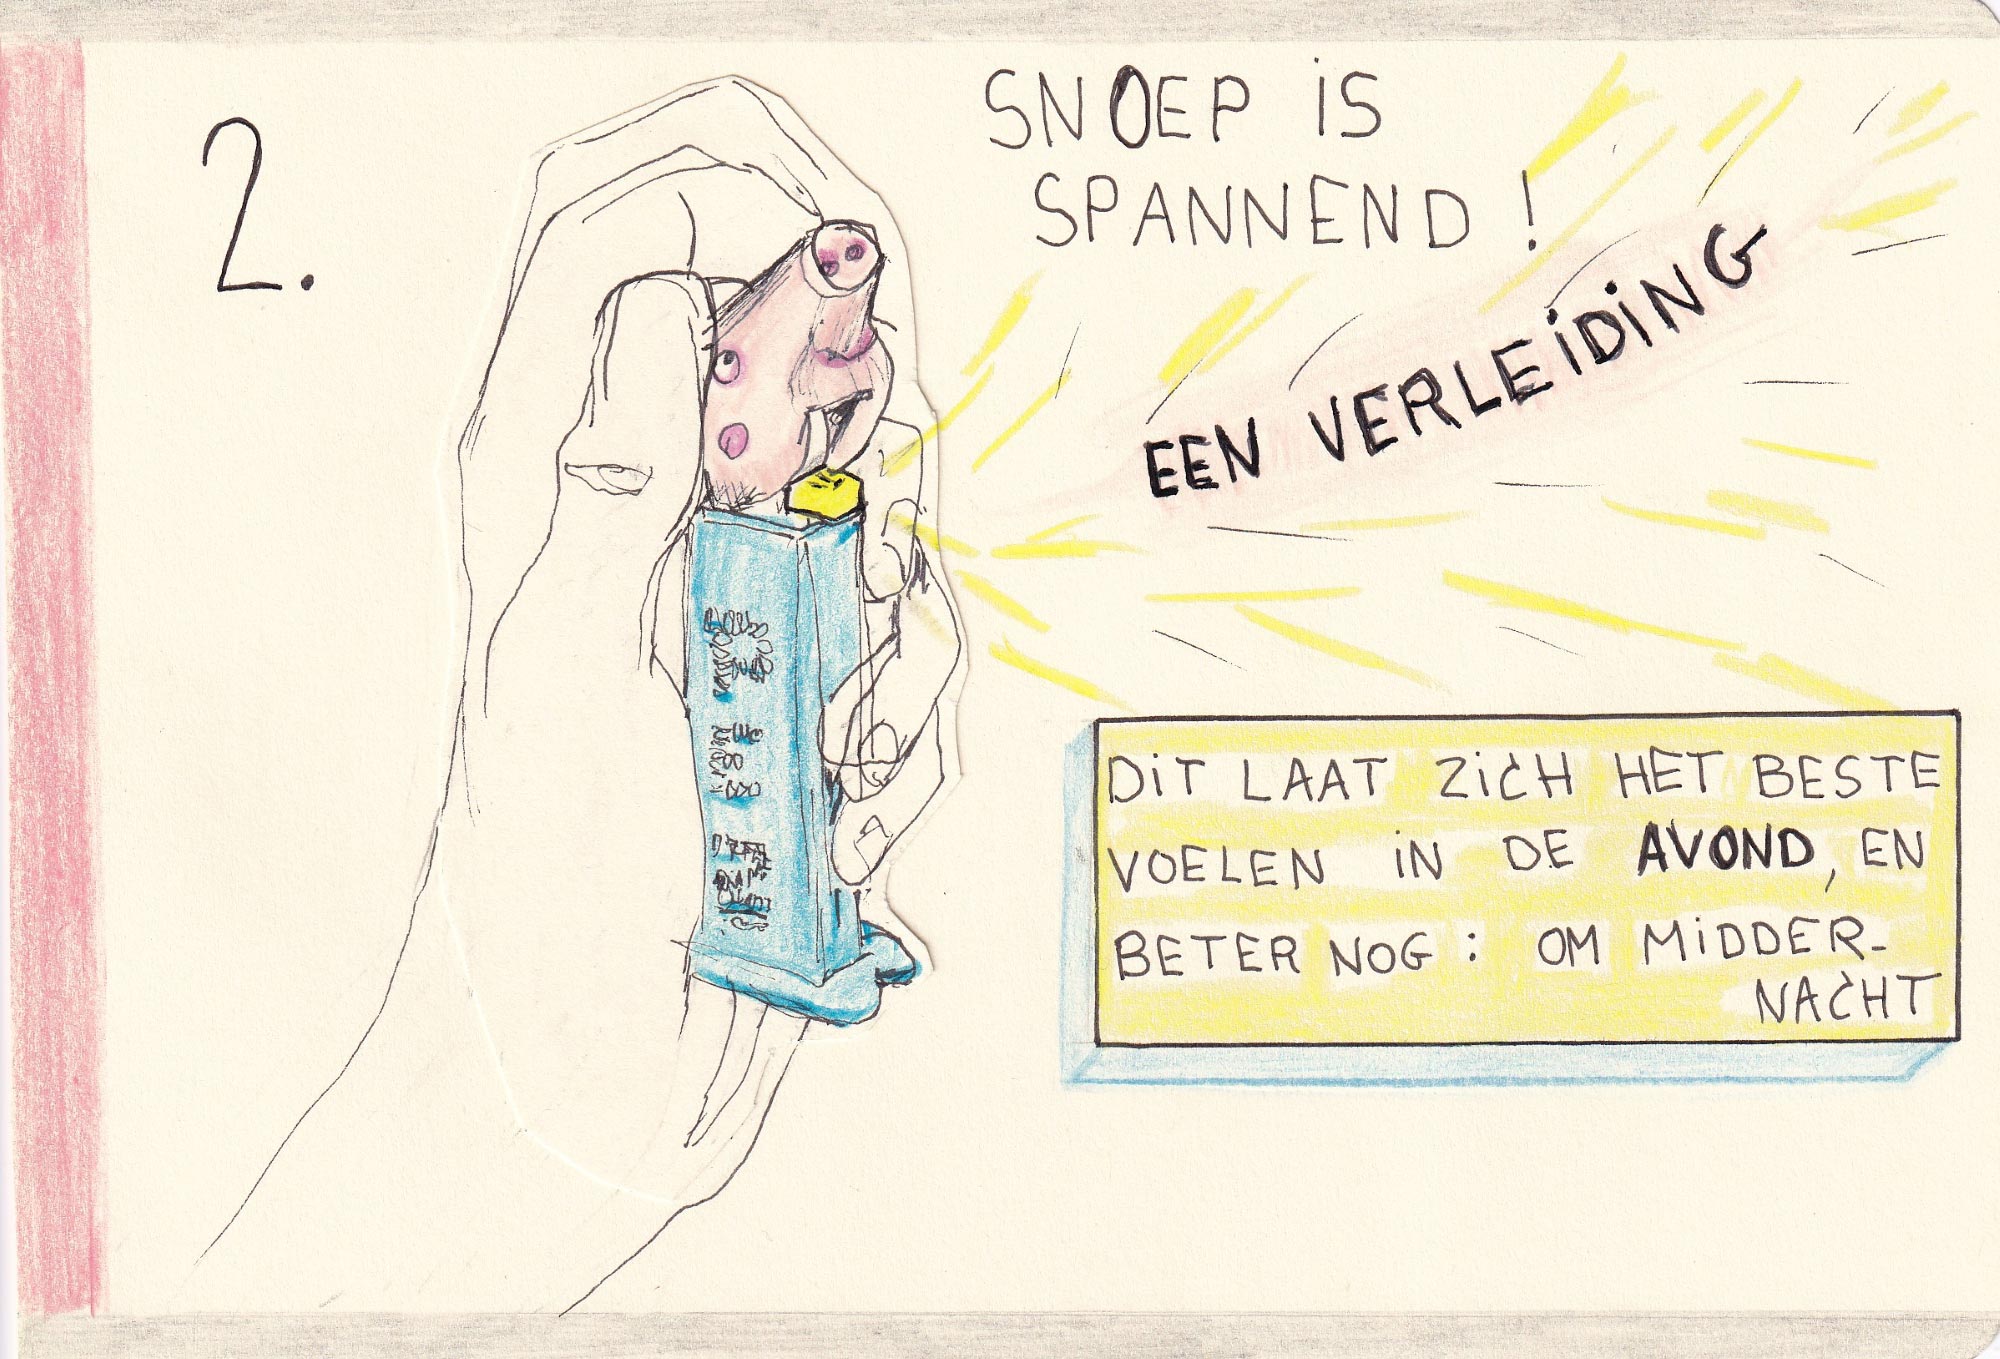 2.
SNOEP IS
SPANNEND!
EEN VERLEIDING
DIT LAAT ZICH HET BESTE
VOELEN IN DE AVOND, EN
BETER NOG: OM MIDDER-
NACHT